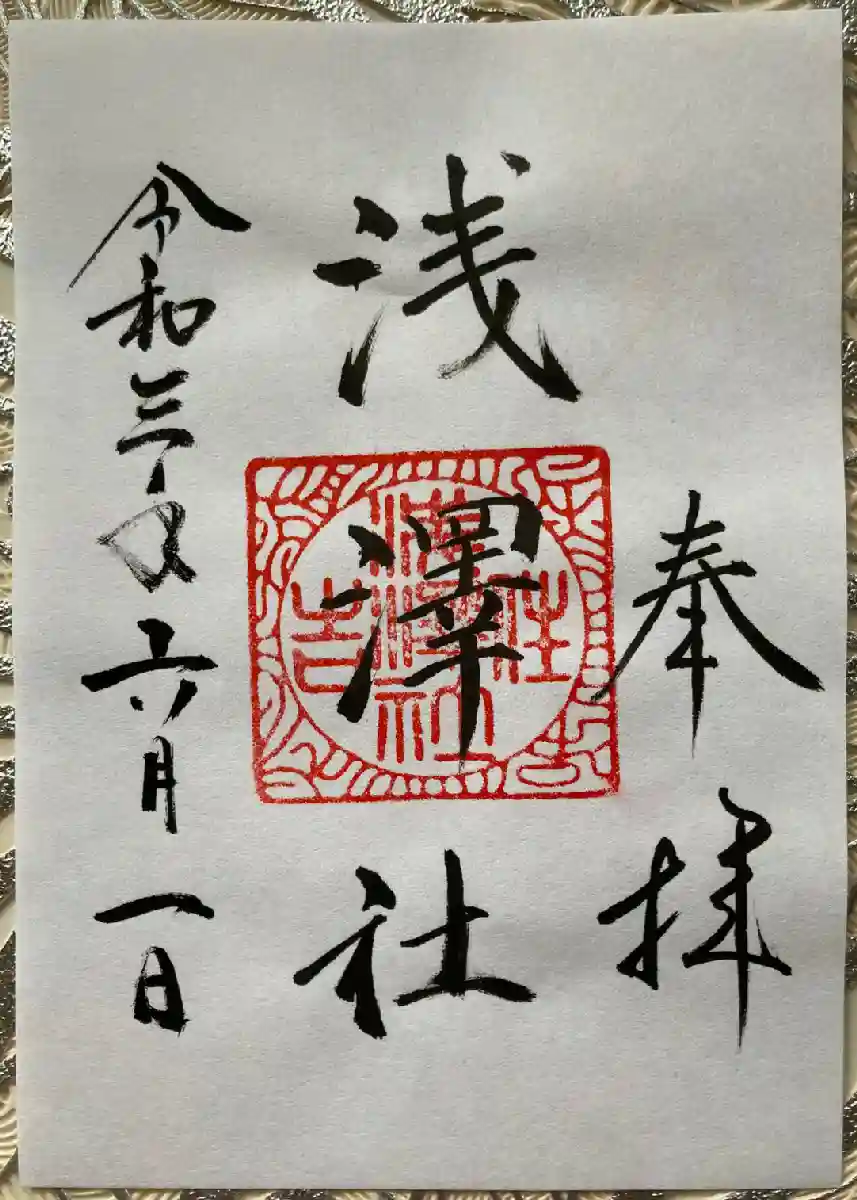 奉拝
浅澤社
住吉
令和三年六月一日